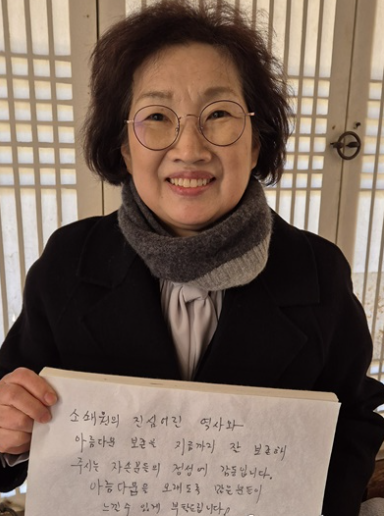 소쇄원의 진심어린 역사와
아름다운 보존을 지금까지 잘 보존해
주시는 자손분들의 정성에 감동입니다.
아름다움을 오래도록 많은분들이
느낄수 있게 부탁드립니다!